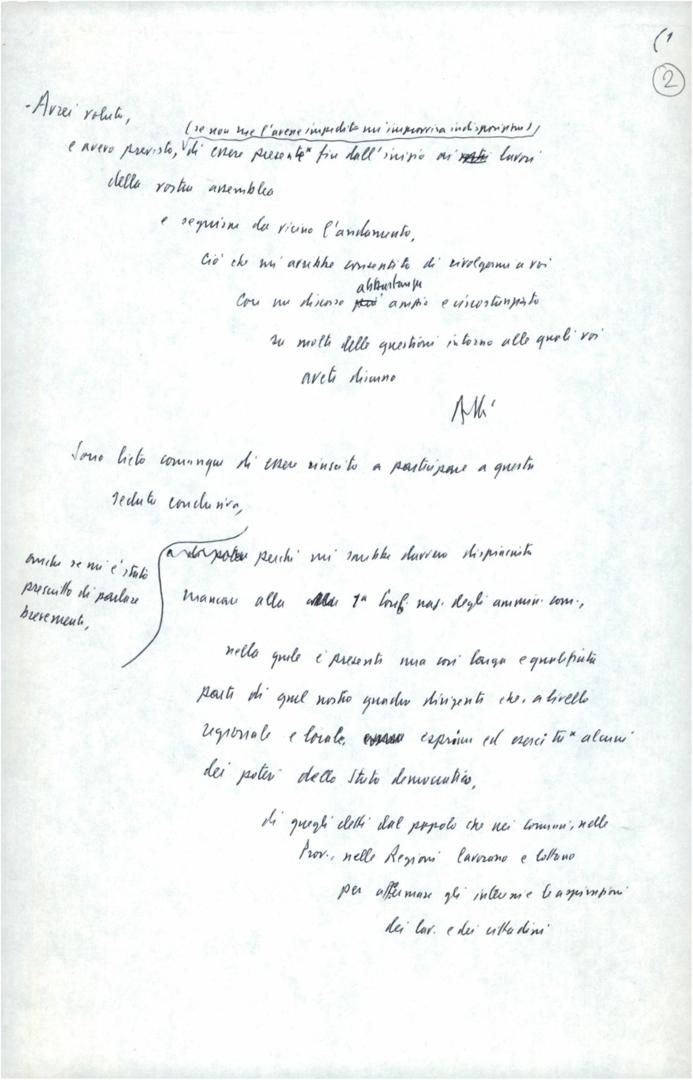 (1
2
- Avrei voluto,
(se non me l'avesse impedito un'improvvisa indisposizione)
e avevo previsto, di essere presente fin dall'inizio ai lavori
della vostra assemblea
e seguirne da vicino l'andamento,
Ciò che mi avrebbe consentito di rivolgermi a voi
abbastanza
con un discorso più ampio e circostanziato
su molte delle questioni intorno alle quali voi
avete discusso
Sono lieto comunque di essere riuscito a partecipare a questa
seduta conclusiva,
anche se mi è stato
prescritto di parlare
brevemente,
perché mi sarebbe davvero dispiaciuto
mancare alla 1ª Conf. naz. degli ammin. com.,
nella quale è presente una così larga e qualificata
parte di quel nostro quadro dirigente che, a livello
regionale e locale, esprime ed esercita alcuni
dei poteri dello Stato democratico,
di quegli eletti dal popolo che nei comuni, nelle
Prov., nelle Regioni lavorano e lottano
per affermare gli interessi e le aspirazioni
dei lav. e dei cittadini